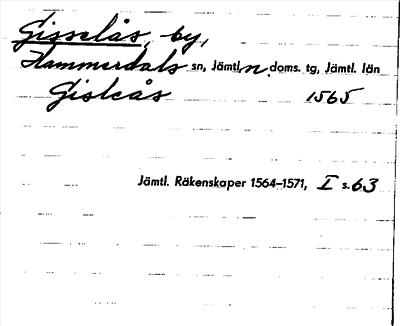 Gisselås, by,
Hammerdals sn, Jämtl. n. doms. tg, Jämtl. län
Gisleås 1565
Jämtl. Räkenskaper 1564–1571, I s. 63